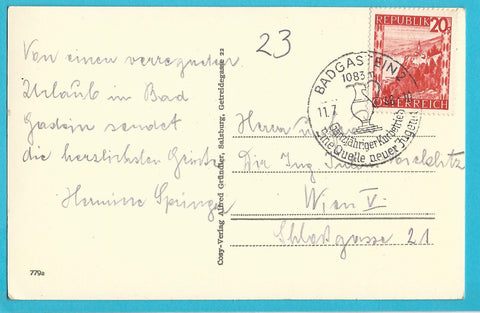 Von einem verregneten
Urlaub in Bad
Gastein sendet
die herzlichsten Grüße
Hermine Springer
779a
Cosy-Verlag Alfred Gründler, Salzburg, Getreidegasse 22
23
REPUBLIK 20
ÖSTERREICH
BADGASTEIN
1083 m
11.7.
Ganzjähriger Kurbetrieb
Eine Quelle neuer Jugend
Herrn u
Dir Ing
Wien V.
Schloßgasse 21